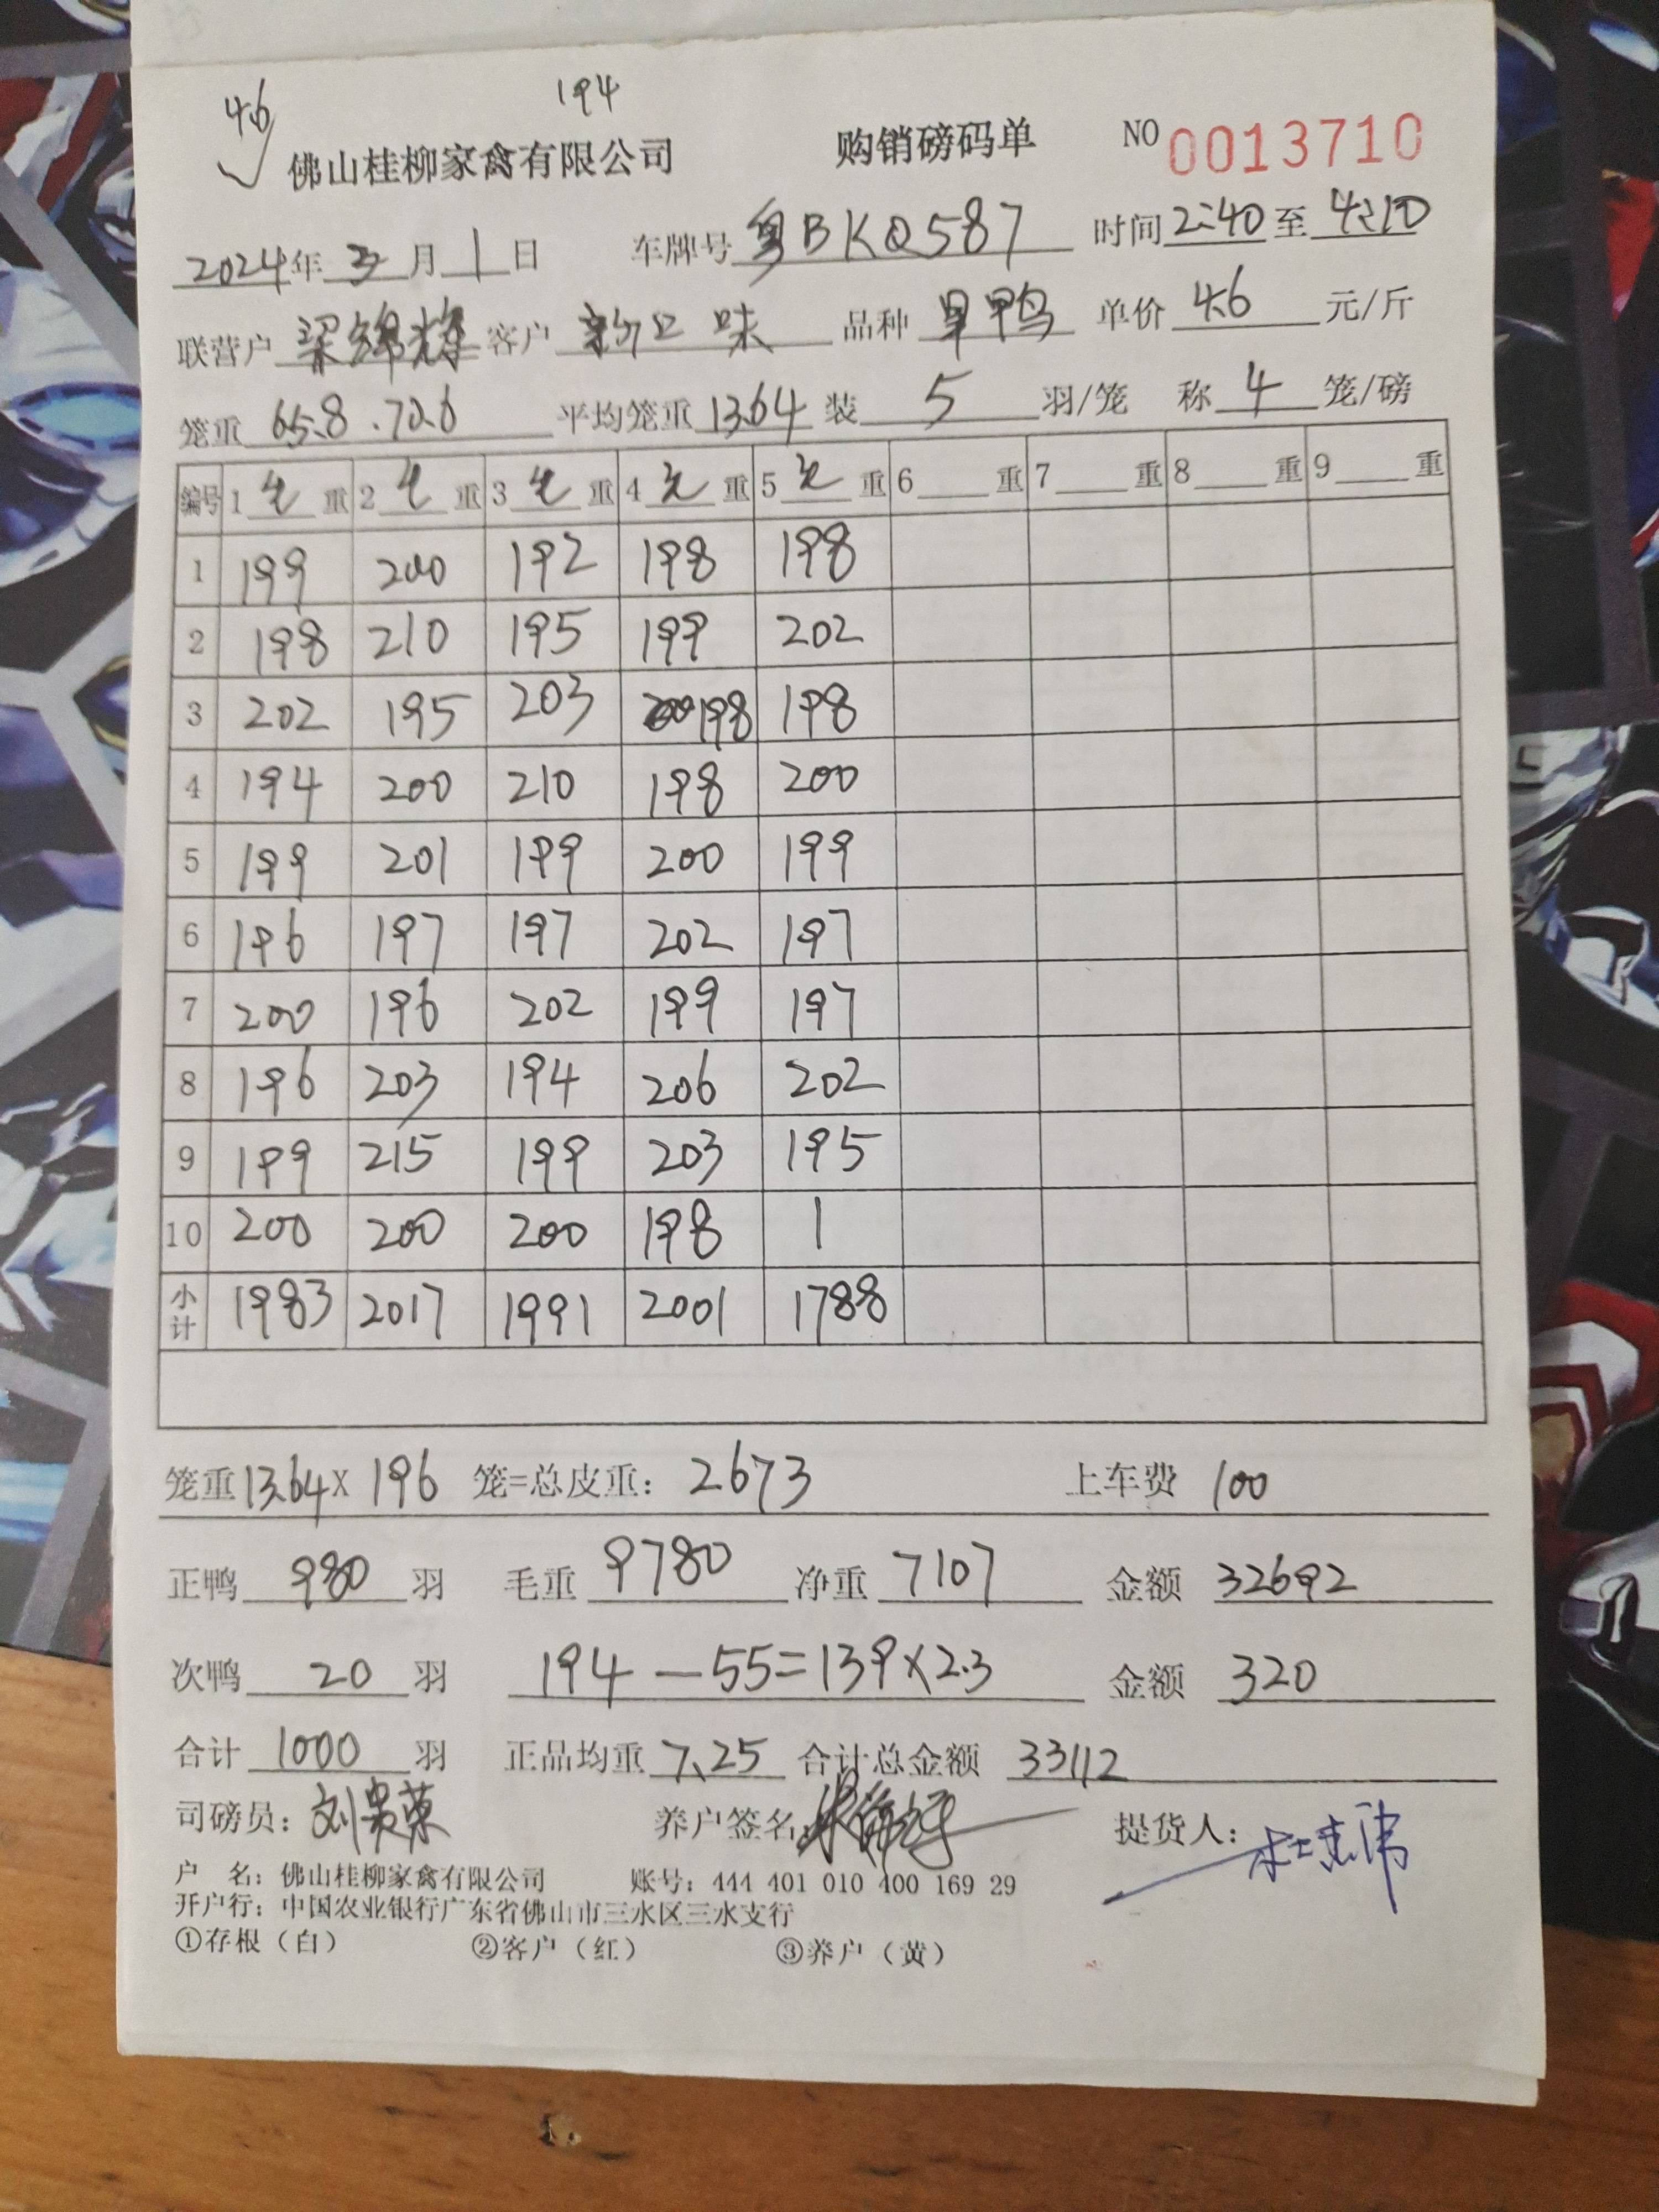 46 194
佛山桂柳家禽有限公司 购销磅码单 NO 0013710
2024年 3 月 1 日 车牌号 粤BKQ587 时间 2:40 至 4:10
联营户 梁锦辉 客户 新口味 品种 旱鸭 单价 4.6 元/斤
笼重 65.8 . 70.6 平均笼重 13.64 装 5 羽/笼 称 4 笼/磅
编号 1 毛 重 2 毛 重 3 毛 重 4 毛 重 5 毛 重 6 重 7 重 8 重 9 重
1 199 200 192 198 198
2 198 210 195 199 202
3 202 195 203 198 198
4 194 200 210 198 200
5 199 201 199 200 199
6 196 197 197 202 197
7 200 196 202 199 197
8 196 203 194 206 202
9 199 215 199 203 195
10 200 200 200 198 1
小计 1983 2017 1991 2001 1788
笼重 13.64 X 196 笼=总皮重: 2673 上车费 100
正鸭 980 羽 毛重 9780 净重 7107 金额 32692
次鸭 20 羽 194-55=139×2.3 金额 320
合计 1000 羽 正品均重 7.25 合计总金额 33112
司磅员: 刘贵荣 养户签名: 提货人:
户 名: 佛山桂柳家禽有限公司 账号: 444 401 010 400 169 29
开户行: 中国农业银行广东省佛山市三水区三水支行
①存根（白） ②客户（红） ③养户（黄）